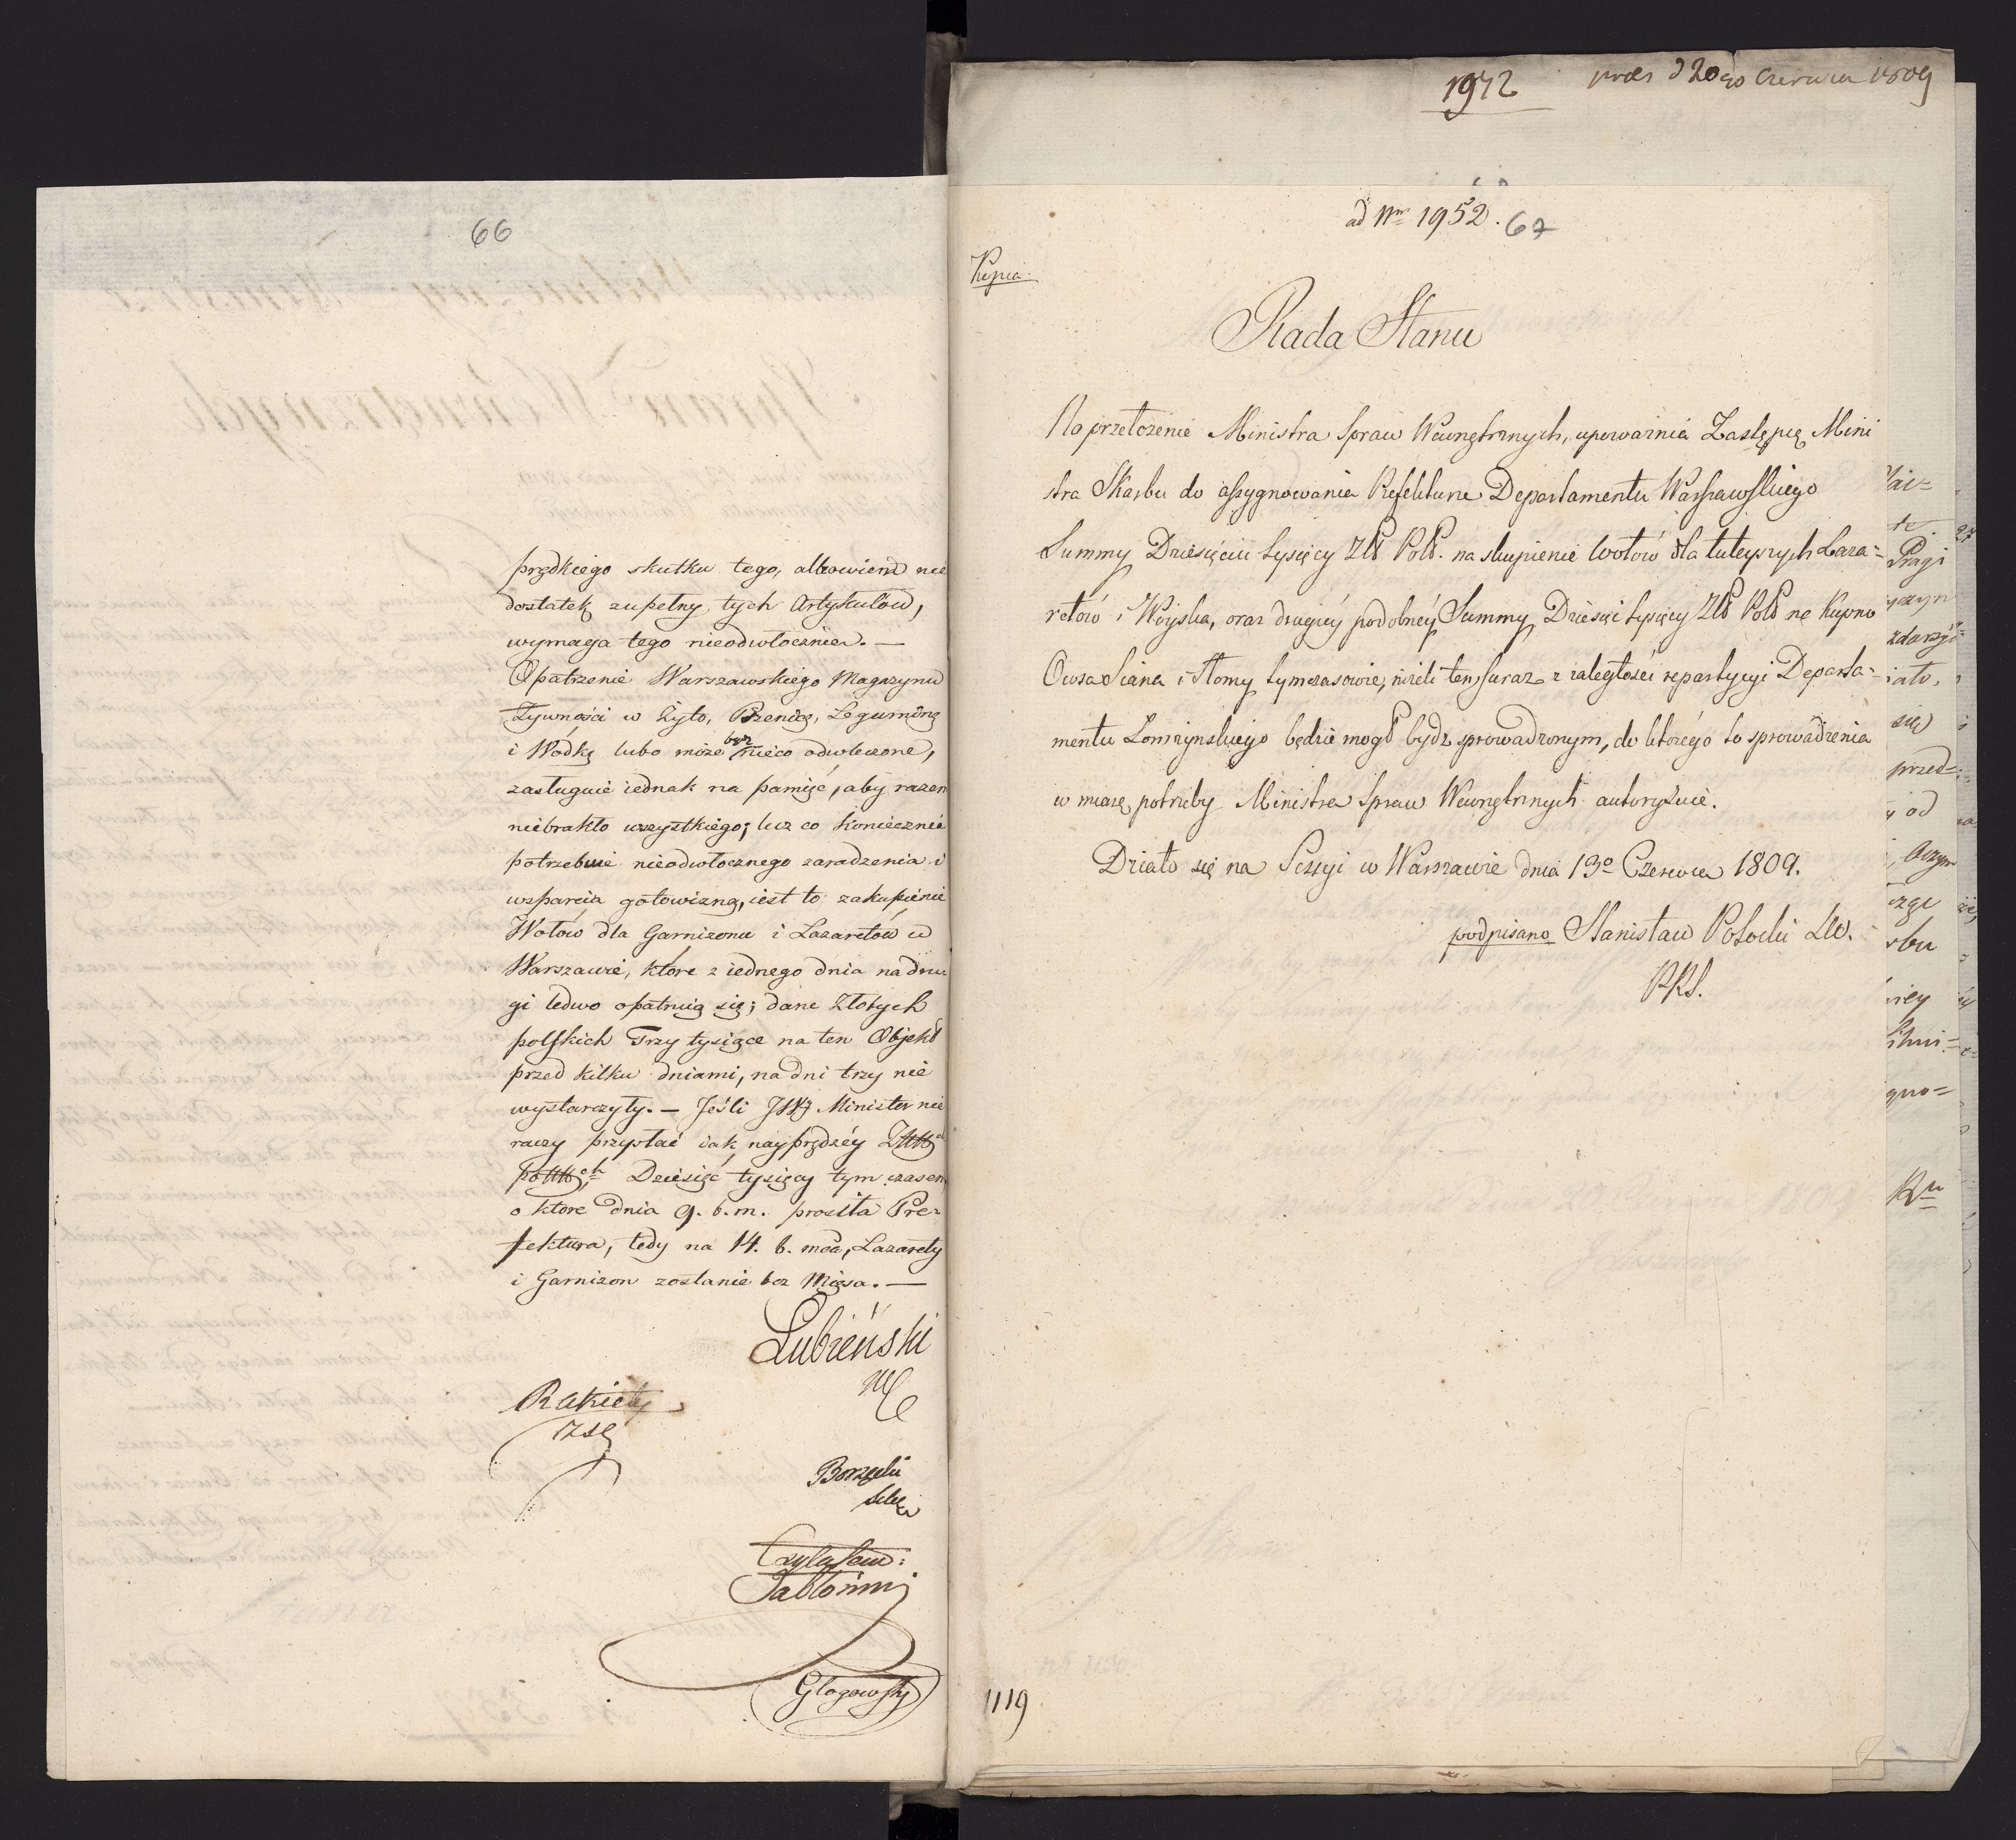 66
prędkiego skutku tego, albowiem nie
dostatek zupełny tych Artykułów,
wymaga tego nieodwłocznie. —
Opatrzenie Warszawskiego Magazynu
Żywności w Żyto, Pszenicę, Leguminę
i Wódkę lubo może być nieco odwleczone,
zasługuie iednak na pamięć, aby razem
niebrakło wszystkiego; lecz co koniecznie
potrzebuie nieodwłocznego zaradzenia i
wsparcia gotowizną, iest to zakupienie
Wołów dla Garnizonu i Lazaretów w
Warszawie, które z iednego dnia na dru
gi ledwo opatruią się; dane Złotych
polskich Trzy tysiące na ten Objekt
przed kilku dniami, na dni trzy nie
wystarczyły. — Jeśli JW Minister nie
raczy przysłać iak nayprędzéy
Dziesięć tysięcy tym czasem
o które dnia 9. b. m. prosiła Pre-
fektura, tedy na 14. b. mca, Lazarety
i Garnizon zostanie bez Mięsa. —
Łubieński
Rakiety
Czytałem:
Głogowski
1972
pres d 20go Czerwca 1809
ad Nrm 1952. 67
Kopia
Rada Stanu
Na przełożenie Ministra Spraw Wewnętrznych, upoważnia Zastępcę Mini
stra Skarbu do assygnowania Prefekturze Departamentu Warszawskiego
Summy Dziesięciu tysięcy Zł Pol. na skupienie wołów dla tuteyszych Laza=
retów i Woyska, oraz drugiéy podobnéy Summy Dziesięć tysięcy Zł Pol na Kupno
Owsa Siana i Słomy tymczasowie, nizeli ten furaz z zaległości repartycyi Departa=
mentu Łomżynskiego będzie mogł bydz sprowadzonym, do którego to sprowadzenia
w miarę potrzeby Ministra Spraw Wewnętrznych autoryzuie.
Działo się na Sessyi w Warszawie dnia 13o Czerwca 1809.
podpisano Stanisław Potocki
PRS.
1119
Pragi
zdarzy
się
przed=
od
gno=